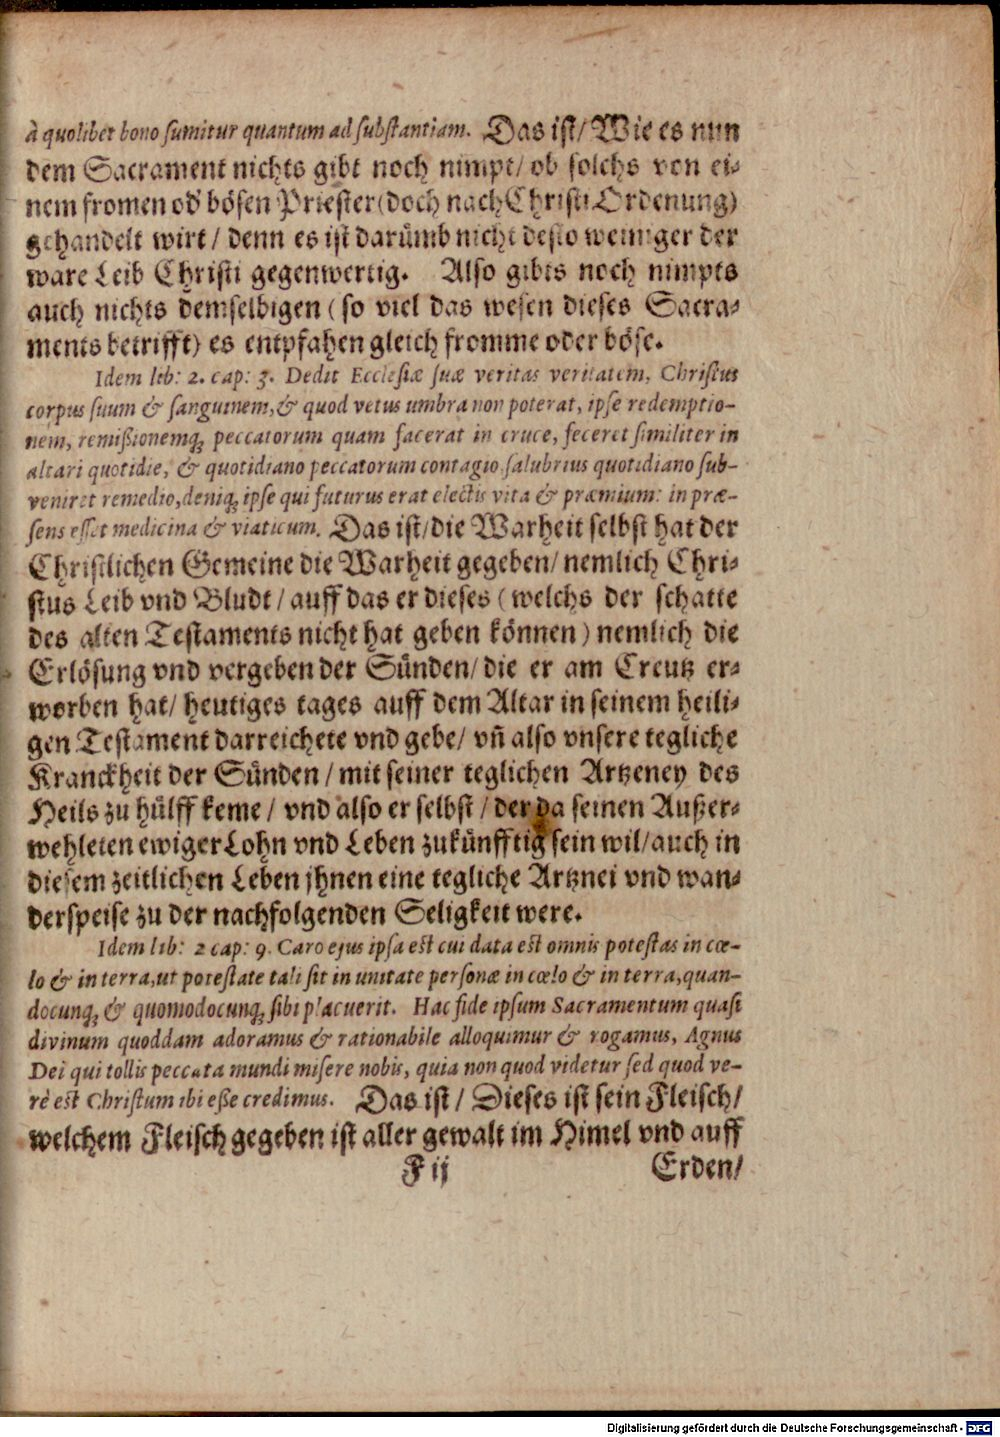 à quolibet bono sumitur quantum ad substantiam. Das ist/ Wie es nun
dem Sacrament nichts gibt noch nimpt/ ob solchs von ei-
nem fromen od' bösen Priester (doch nach Christi Ordenung)
gehandelt wirt / denn es ist darümb nicht desto weiniger der
ware Leib Christi gegenwertig. Also gibts noch nimpts
auch nichts demselbigen ( so viel das wesen dieses Sacra-
ments betrifft) es entpfahen gleich fromme oder böse.
Idem lib: 2. cap: 3. Dedit Ecclesiæ suæ veritas veritatem, Christus
corpus suum & sanguinem, & quod vetus umbra non poterat, ipse redemptio-
nem, remißionemq; peccatorum quam facerat in cruce, feceret similiter in
altari quotidie, & quotidiano peccatorum contagio salubrius quotidiano sub-
veniret remedio, deniq; ipse qui futurus erat electis vita & præmium: in præ-
sens esset medicina & viaticum. Das ist/ die Warheit selbst hat der
Christlichen Gemeine die Warheit gegeben/ nemlich Chri-
stus Leib vnd Bludt / auff das er dieses ( welchs der schatte
des alten Testaments nicht hat geben können ) nemlich die
Erlösung vnd vergeben der Sünden/ die er am Creutz er-
worben hat/ heutiges tages auff dem Altar in seinem heili-
gen Testament darreichete vnd gebe/ vñ also vnsere tegliche
Kranckheit der Sünden / mit seiner teglichen Artzeney des
Heils zu hülff keme / vnd also er selbst / der da seinen Außer-
wehleten ewiger Lohn vnd Leben zukünfftig sein wil/ auch in
diesem zeitlichen Leben jhnen eine tegliche Artznei vnd wan-
derspeise zu der nachfolgenden Seligkeit were.
Idem lib: 2 cap: 9. Caro ejus ipsa est cui data est omnis potestas in cœ-
lo & in terra, ut potestate tali sit in unitate personæ in cœlo & in terra, quan-
docunq; & quomodocunq; sibi placuerit. Hac fide ipsum Sacramentum quasi
divinum quoddam adoramus & rationabile alloquimur & rogamus, Agnus
Dei qui tollis peccata mundi misere nobis, quia non quod videtur sed quod ve-
rè est Christum ibi eße credimus. Das ist / Dieses ist sein Fleisch/
welchem Fleisch gegeben ist aller gewalt im Himel vnd auff
F ij Erden/
Digitalisierung gefördert durch die Deutsche Forschungsgemeinschaft - DFG